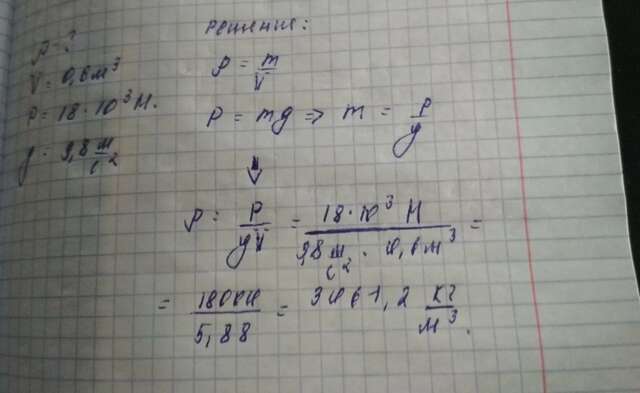 Решение:
ρ - ?
V = 0,6 м³
P = 18 · 10³ Н.
g = 9,8 м/с²
ρ = m/V
P = mg => m = P/g
↓
ρ = P/gV = 18 · 10³ Н / 9,8 м/с² · 0,6 м³ =
= 18000/5,88 = 3061,2 кг/м³.